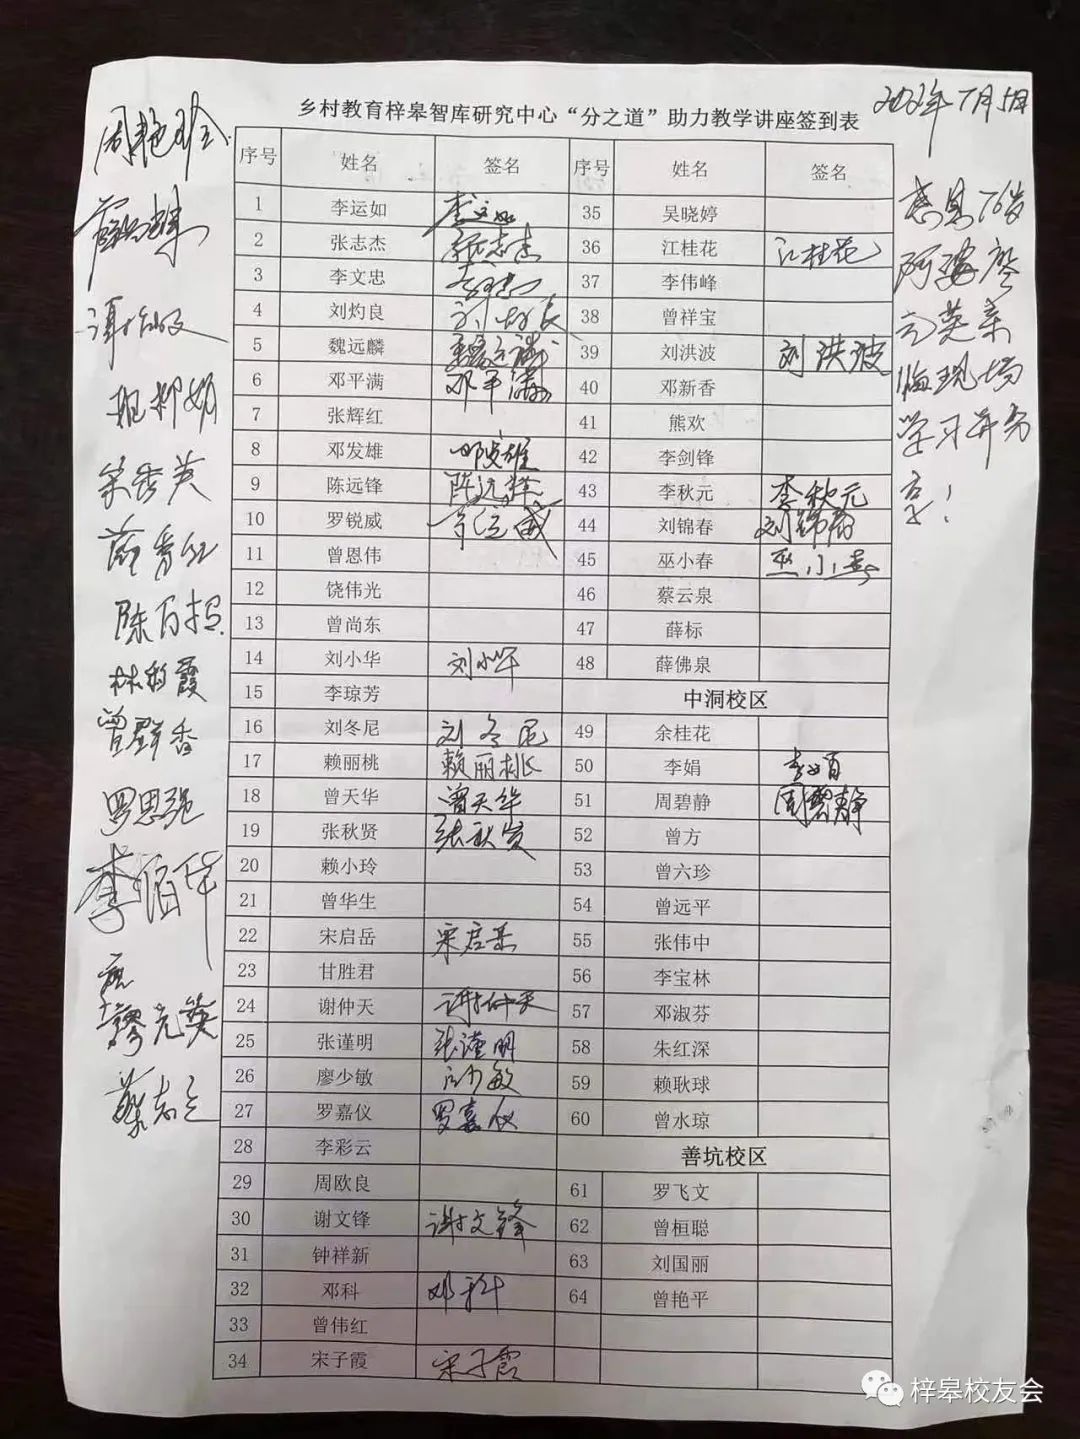 乡村教育梓皋智库研究中心“分之道”助力教学讲座签到表
2022年7月5日
序号 姓名 签名 序号 姓名 签名
1 李运如 35 吴晓婷
2 张志杰 张志杰 36 江桂花 江桂花
3 李文忠 李文忠 37 李伟峰
4 刘灼良 38 曾祥宝
5 魏远麟 魏远麟 39 刘洪波 刘洪波
6 邓平满 邓平满 40 邓新香
7 张辉红 41 熊欢
8 邓发雄 邓发雄 42 李剑锋
9 陈远锋 陈远锋 43 李秋元 李秋元
10 罗锐威 44 刘锦春 刘锦春
11 曾恩伟 45 巫小春 巫小春
12 饶伟光 46 蔡云泉
13 曾尚东 47 薛标
14 刘小华 刘小华 48 薛佛泉
15 李琼芳 中洞校区
16 刘冬尼 刘冬尼 49 余桂花
17 赖丽桃 赖丽桃 50 李娟 李娟
18 曾天华 曾天华 51 周碧静 周碧静
19 张秋贤 张秋贤 52 曾方
20 赖小玲 53 曾六珍
21 曾华生 54 曾远平
22 宋启岳 宋启岳 55 张伟中
23 甘胜君 56 李宝林
24 谢仲天 谢仲天 57 邓淑芬
25 张谨明 张谨明 58 朱红深
26 廖少敏 59 赖耿球
27 罗嘉仪 罗嘉仪 60 曾水琼
28 李彩云 善坑校区
29 周欧良 61 罗飞文
30 谢文锋 谢文锋 62 曾桓聪
31 钟祥新 63 刘国丽
32 邓科 邓科 64 曾艳平
33 曾伟红
34 宋子霞 宋子霞
周艳玲
陈百招
曾群香
罗思强
廖元英
感恩76岁
阿婆廖
元英亲
临现场
学习并分
享！
梓皋校友会